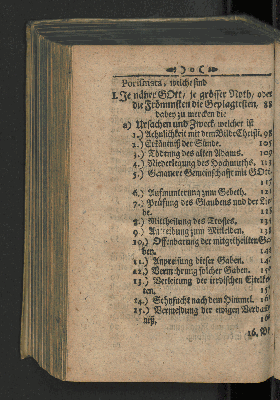 Porismata, welche sind
I. Je näher GOtt, je grösser Noth, oder
die Frömmsten die Geplagtesten, 88
dabey zu mercken die
a) Ursachen und Zweck, welcher ist
1.) Aehnlichkeit mit dem Bilde Christi, 98
2.) Erkäntnüß der Sünde. 105
3.) Tödtung des alten Adams. 109
4.) Niederlegung des Hochmuths, 113
5.) Genauere Gemeinschafft mit GOtt.
6.) Aufmunterung zum Gebeth. 12
7.) Prüfung des Glaubens und der Lie-
be. 12
8.) Mittheilung des Trostes. 13
9.) Antreibung zum Mitleiden. 13
10.) Offenbarung der mitgetheilten Ga-
ben. 14
11.) Anpreisung dieser Gaben. 14
12.) Vermehrung solcher Gaben. 15
13.) Verleitung der irdischen Eitelkei-
ten. 15
14.) Sehnsucht nach dem Himmel. 16
15.) Vermeidung der ewigen Verdam-
niß, 16
16. Ve